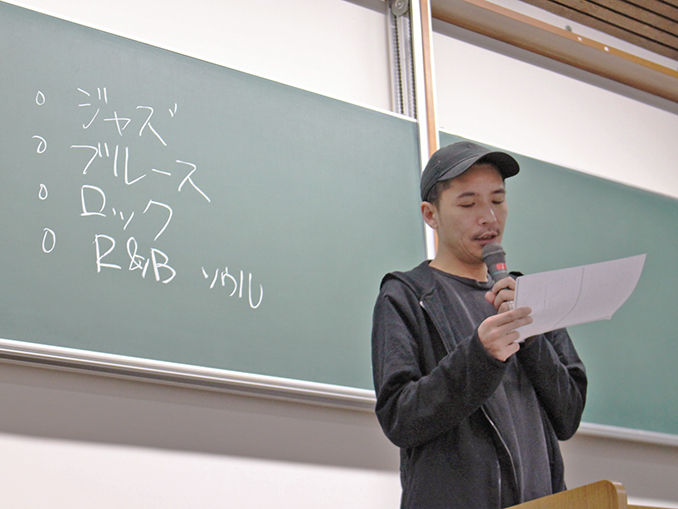 ○ ジャズ
○ ブルース
○ ロック
○ R&B ソウル